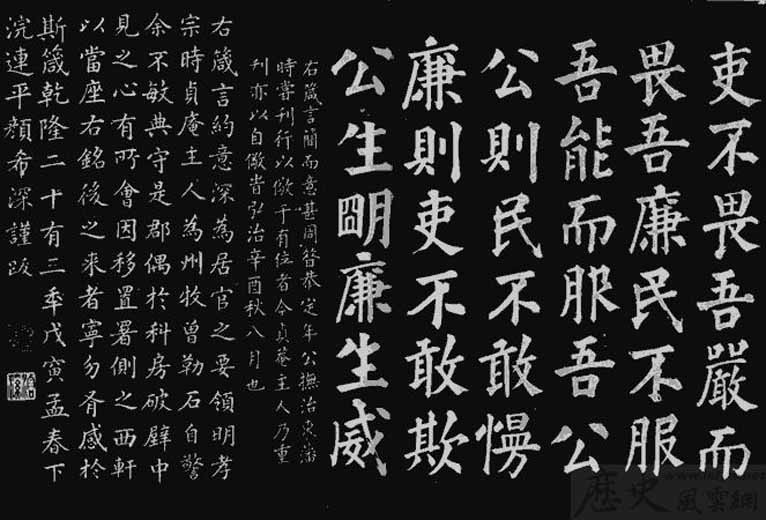 吏不畏吾嚴而
畏吾廉民不服
吾能而服吾公
公則民不敢慢
廉則吏不敢欺
公生朙廉生威
右箴言簡而意甚周昔恭定年公撫治東藩
時嘗刊行以儆于有位者今貞菴主人乃重
刊亦以自儆旹弘治辛酉秋八月也
右箴言約意深為居官之要領明孝
宗時貞庵主人為州牧曾勒石自警
余不敏典守是郡偶於科房破壁中
見之心有所會因移置署側之西軒
以當座右銘後之來者寧勿胥感於
斯箴乾隆二十有三年戊寅孟春下
浣連平顏希深謹跋
歷史風雲網